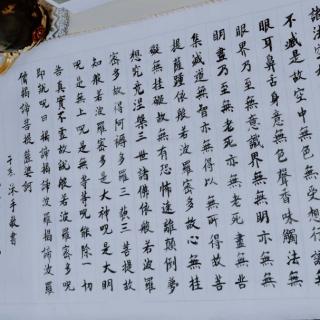 諸法空
不減是故空中無色無受想行識無
眼耳鼻舌身意無色聲香味觸法無
眼界乃至無意識界無無明亦無無
明盡乃至無老死亦無老死盡無苦
集滅道無智亦無得以無所得故菩
提薩埵依般若波羅密多故心無挂
礙無挂礙故無有恐怖遠離顛倒夢
想究竟涅槃三世諸佛依般若波羅
密多故得阿耨多羅三藐三菩提故
知般若波羅密多是大神呪是大明
呪是無上呪是無等等呪能除一切
苦真實不虛故說般若波羅密多呪
即說呪曰揭諦揭諦波羅揭諦波羅
僧揭諦菩提薩婆訶
沐手敬書